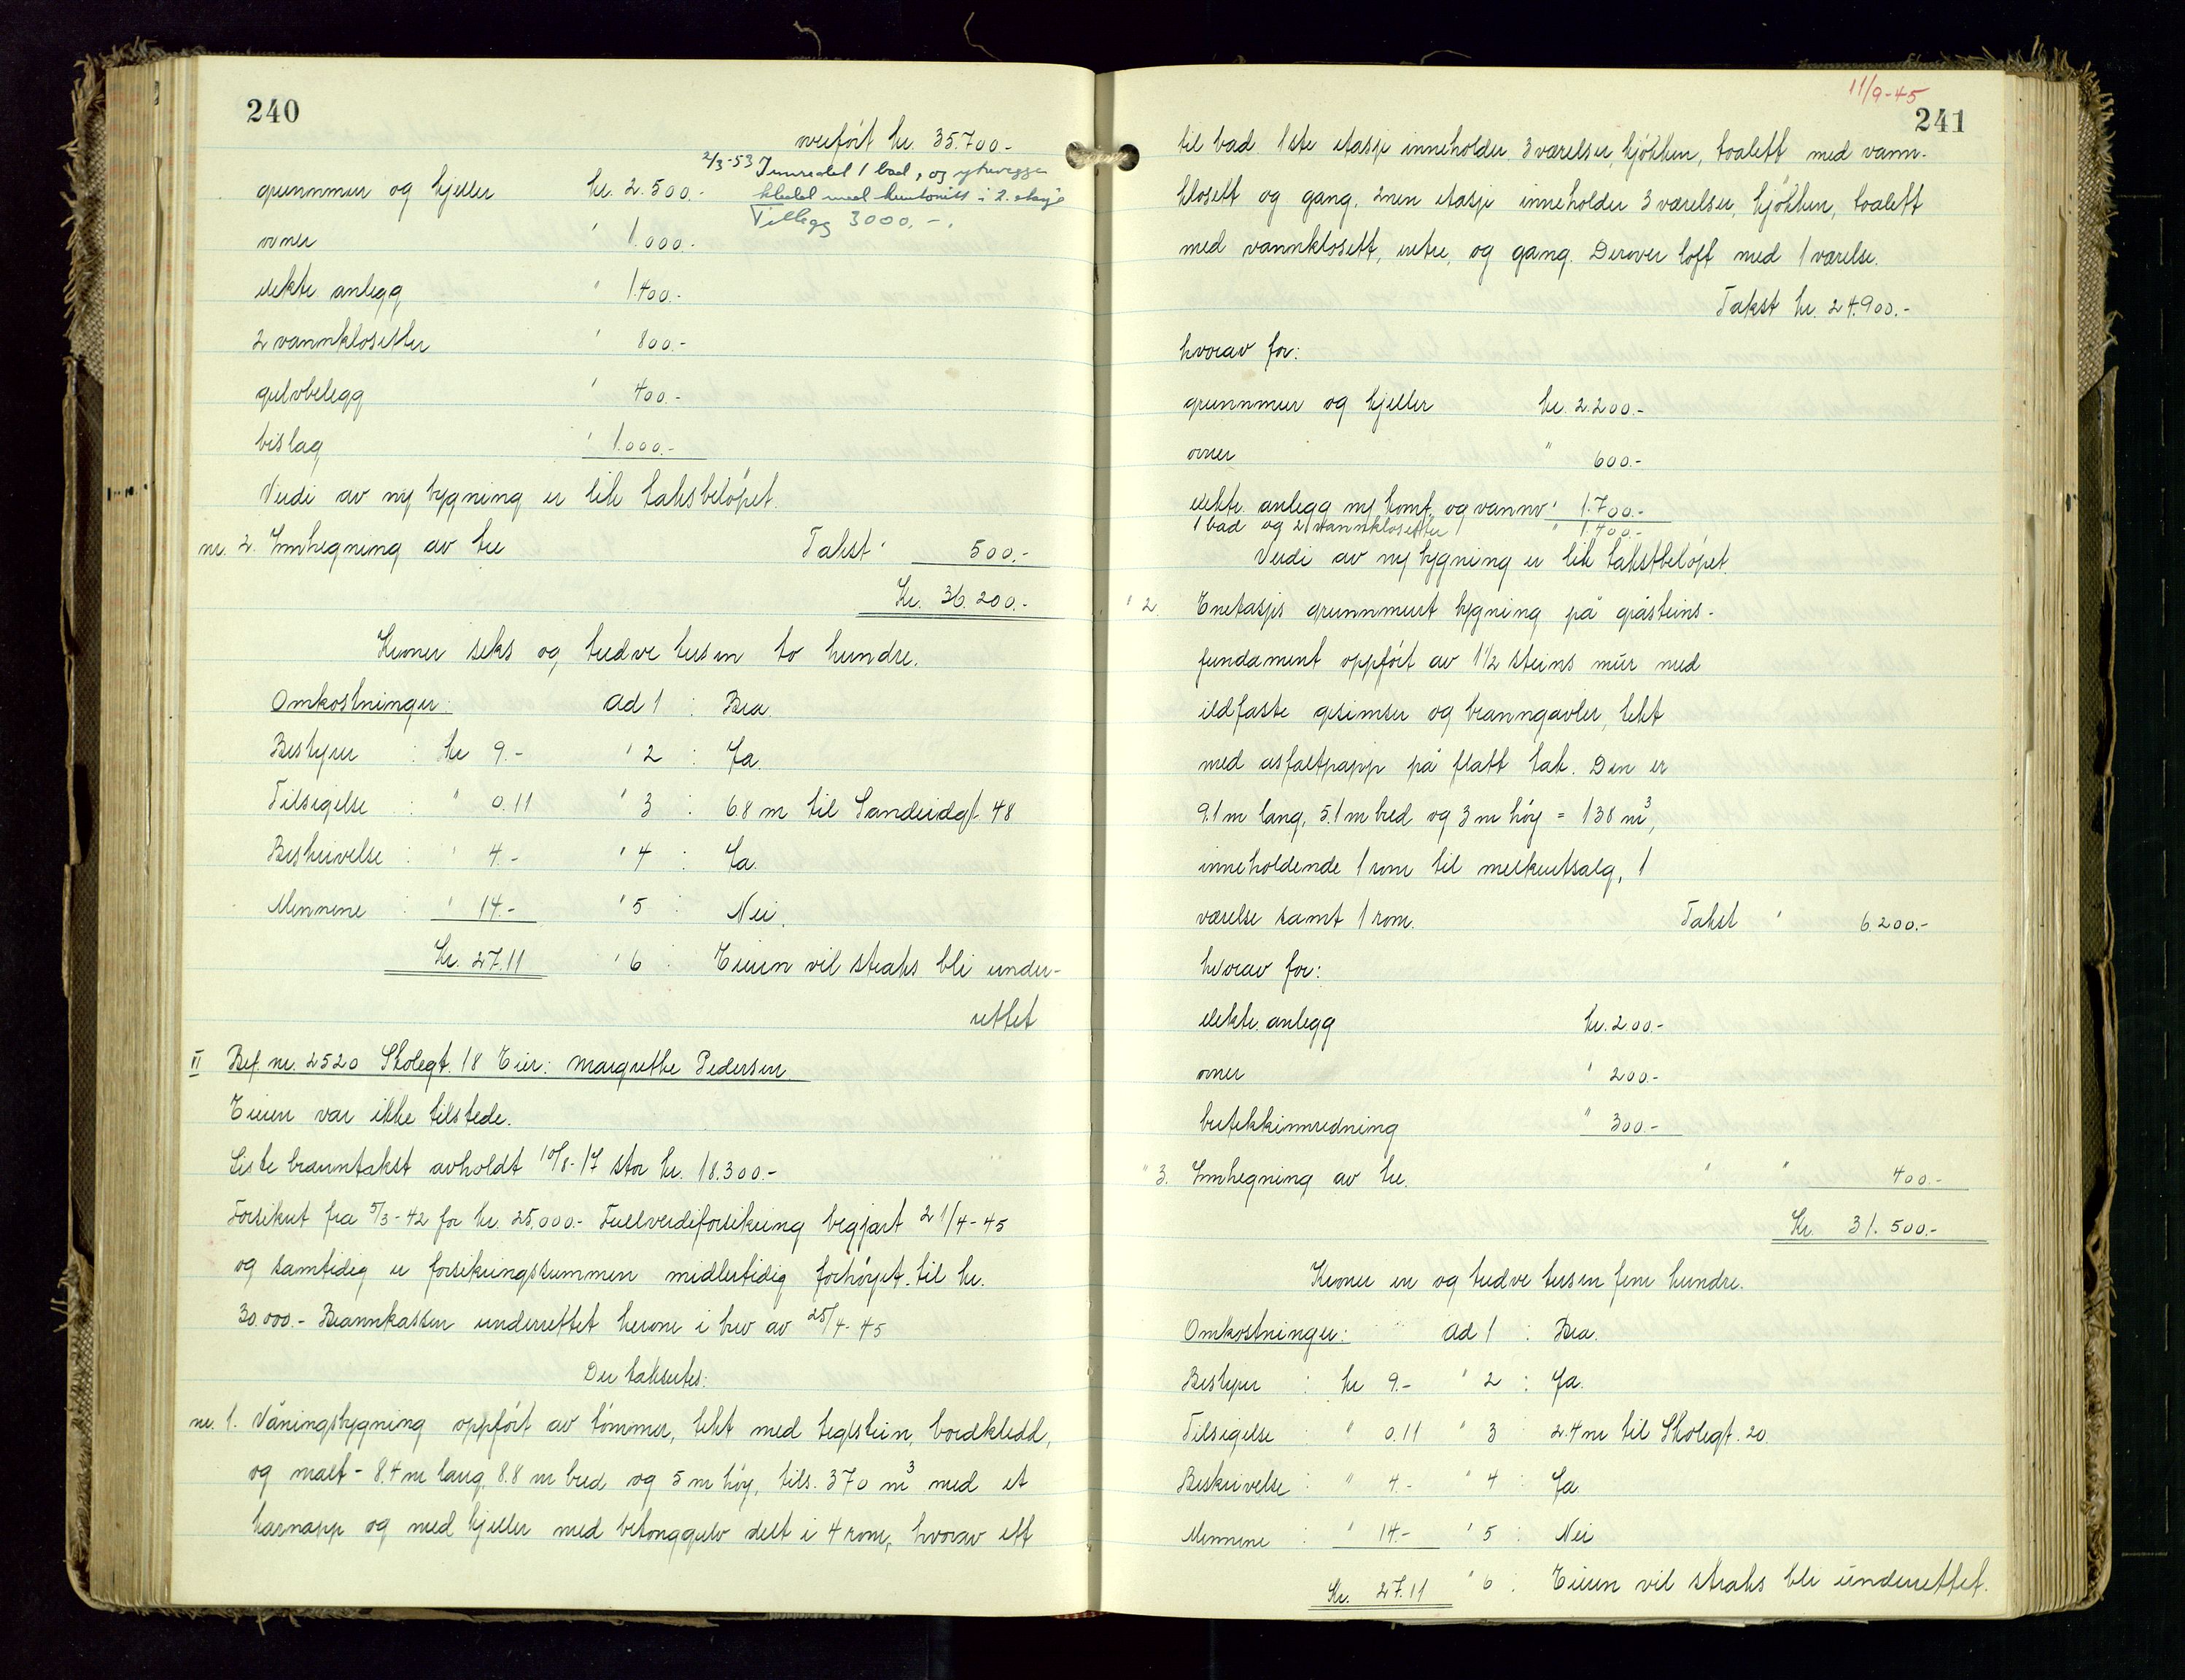 240
overført kr. 35.700.-
2/3-53 Innredet 1 bad, og yttervegger
grunnmur og kjeller kr. 2.500.- kledd med huntonitt i 2. etasje
Tillegg 3000.-.
ovner " 1.000.-
elektr. anlegg " 1.400.-
2 vannklosetter " 800.-
gulvbelegg " 400.-
bislag " 1.000.-
Verdi av ny bygning er lik taksbeløpet.
nr. 2. Innhegning av tre Takst " 500.-
Kr. 36.200.-
Kroner seks og tredve tusen to hundre.
Omkostninger: ad 1 : Bra.
Bestyrer : kr 9.- " 2 : Ja.
Tilsigelse : " 0.11 " 3 : 6.8 m til Sandeidgt. 48
Beskrivelse : " 4.- " 4 : Ja.
Mennene : " 14.- " 5 : Nei.
Kr. 27.11 " 6 : Eieren vil straks bli under-
rettet
II Bef. nr. 2520 Skolegt. 18 Eier: Margrethe Pedersen
Eieren var ikke tilstede.
Siste branntakst avholdt 10/8-17 stor kr. 18.300.-
Forsikret fra 5/3-42 for kr. 25.000.- Fullverdiforsikring begjært 21/4-45
og samtidig er forsikringssummen midlertidig forhøyet til kr.
30.000.- Brannkassen underrettet herom i brev av 25/4-45
Der takseres:
nr. 1. Våningsbygning oppført av tømmer, tekt med teglstein, bordkledd,
og malt - 8.4 m lang, 8.8 m bred og 5 m høy, tils. 370 m3 med et
karnapp og med kjeller med betonggulv delt i 4 rom, hvorav ett
11/9-45
241
til bad. 1ste etasje inneholder 3 værelser, kjøkken, toalett med vann-
klosett og gang. 2nen etasje inneholder 3 værelser, kjøkken, toalett
med vannklosett, entre, og gang. Derover loft med 1 værelse.
Takst kr. 24.900.-
hvorav for:
grunnmur og kjeller kr. 2.200.-
ovner " 600.-
elektr. anlegg ny komf. og vannv " 1.700.-
1 bad og 2 vannklosetter " 1.400.-
Verdi av ny bygning er lik takstbeløpet.
" 2. Enetasjes grunnmurt bygning på gråsteins-
fundament oppført av 1 1/2 steins mur med
ildfaste gesimser og branngavler, tekt
med asfaltpapp på flatt tak. Den er
9.1 m lang, 5.1 m bred og 3 m høy = 138 m3,
inneholdende 1 rom til melkeutsalg, 1
værelse samt 1 rom. Takst " 6.200.-
hvorav for:
elektr. anlegg kr. 200.-
ovner " 200.-
butikkinnredning " 300.-
" 3. Innhegning av tre. " " 400.-
Kr. 31.500.-
Kroner en og tredve tusen fem hundre.
Omkostninger: ad 1 : Bra.
Bestyrer : kr 9.- " 2 : Ja.
Tilsigelse : " 0.11 " 3 : 2.4 m til Skolegt. 20.
Beskrivelse : " 4.- " 4 : Ja
Mennene : " 14.- " 5 : Nei
Kr. 27.11 " 6 : Eieren vil straks bli underrettet.